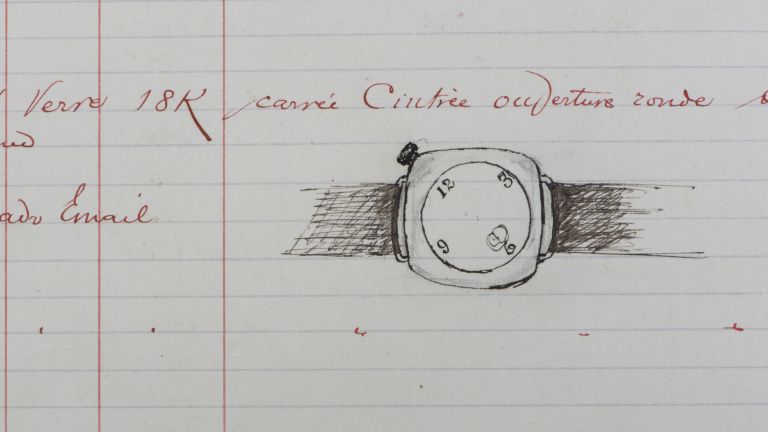 Verre 18K carrée Cintrée ouverture ronde
Email
12 3
9 6